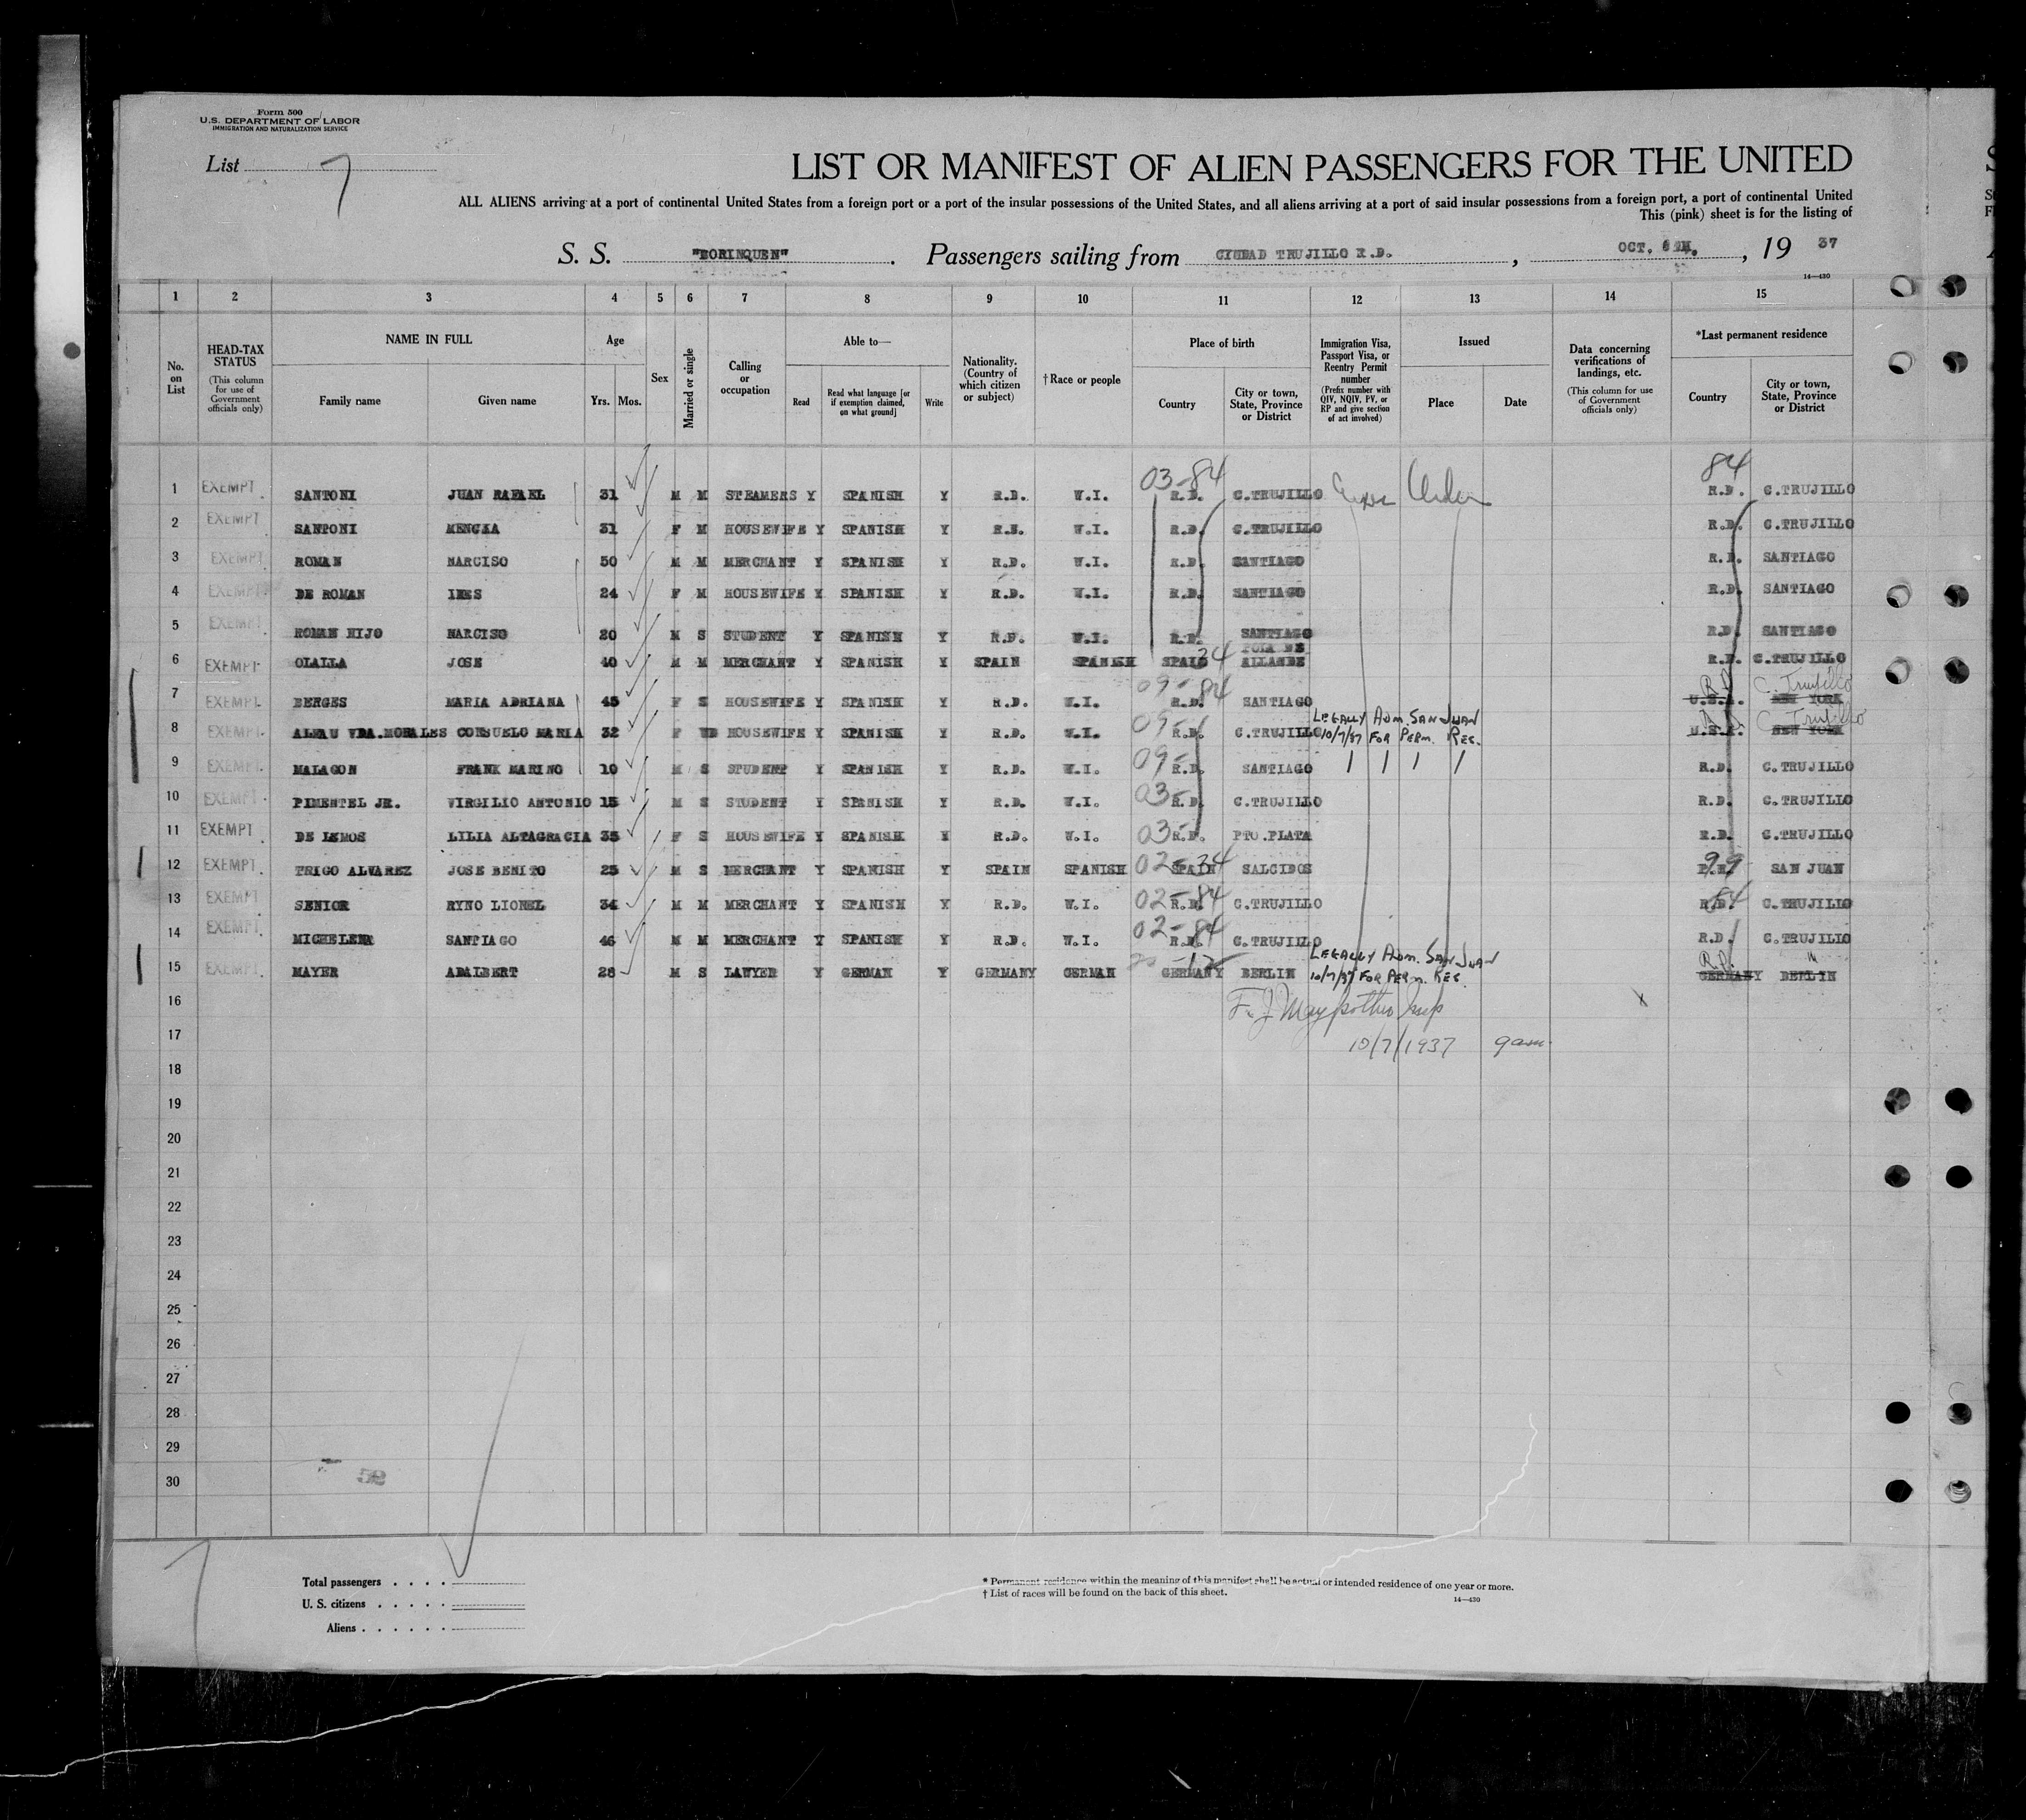 Form 500
U.S. DEPARTMENT OF LABOR
IMMIGRATION AND NATURALIZATION SERVICE
List 7
LIST OR MANIFEST OF ALIEN PASSENGERS FOR THE UNITED
ALL ALIENS arriving at a port of continental United States from a foreign port or a port of the insular possessions of the United States, and all aliens arriving at a port of said insular possessions from a foreign port, a port of continental United
This (pink) sheet is for the listing of
S. S. "BORINQUEN". Passengers sailing from CIUDAD TRUJILLO R.D., OCT. 6TH., 19 37
14—430
1 2 3 4 5 6 7 8 9 10 11 12 13 14 15
No. on List
HEAD-TAX STATUS
(This column for use of Government officials only)
NAME IN FULL
Family name Given name
Age
Yrs. Mos.
Sex
Married or single
Calling or occupation
Able to—
Read
Read what language [or if exemption claimed, on what ground]
Write
Nationality. (Country of which citizen or subject)
†Race or people
Place of birth
Country
City or town, State, Province or District
Immigration Visa, Passport Visa, or Reentry Permit number
(Prefix number with QIV, NQIV, PV, or RP and give section of act involved)
Issued
Place Date
Data concerning verifications of landings, etc.
(This column for use of Government officials only)
*Last permanent residence
Country
City or town, State, Province or District
03-84 84
1 EXEMPT SANTONI JUAN RAFAEL 31 M M STEAMERS Y SPANISH Y R.D. W.I. R.D. C.TRUJILLO R.D. C.TRUJILLO
2 EXEMPT SANTONI MENCKA 31 F M HOUSEWIFE Y SPANISH Y R.D. W.I. R.D. C.TRUJILLO R.D. C.TRUJILLO
3 EXEMPT ROMAN NARCISO 50 M M MERCHANT Y SPANISH Y R.D. W.I. R.D. SANTIAGO R.D. SANTIAGO
4 EXEMPT DE ROMAN INES 24 F M HOUSEWIFE Y SPANISH Y R.D. W.I. R.D. SANTIAGO R.D. SANTIAGO
5 EXEMPT ROMAN HIJO NARCISO 20 M S STUDENT Y SPANISH Y R.D. W.I. R.D. SANTIAGO R.D. SANTIAGO
6 EXEMPT OLALLA JOSE 40 M M MERCHANT Y SPANISH Y SPAIN SPANISH SPAIN 34 POLA DE ALLANDE R.D. C.TRUJILLO
7 EXEMPT BERGES MARIA ADRIANA 45 F S HOUSEWIFE Y SPANISH Y R.D. W.I. 09-84 R.D. SANTIAGO U.S.A. NEW YORK R.D. C. Trujillo
LEGALLY ADM. SAN JUAN
8 EXEMPT ALFAU VDA.MORALES CONSUELO MARIA 32 F WD HOUSEWIFE Y SPANISH Y R.D. W.I. 09- R.D. C.TRUJILLO 10/7/37 FOR PERM. RES. U.S.A. NEW YORK R.D. C. Trujillo
9 EXEMPT MALAGON FRANK MARINO 10 M S STUDENT Y SPANISH Y R.D. W.I. 09- R.D. SANTIAGO R.D. C.TRUJILLO
10 EXEMPT PIMENTEL JR. VIRGILIO ANTONIO 15 M S STUDENT Y SPANISH Y R.D. W.I. 03- R.D. C.TRUJILLO R.D. C.TRUJILLO
11 EXEMPT DE LEMOS LILIA ALTAGRACIA 35 F S HOUSEWIFE Y SPANISH Y R.D. W.I. 03- R.D. PTO.PLATA R.D. C.TRUJILLO
12 EXEMPT TRIGO ALVAREZ JOSE BENITO 25 M S MERCHANT Y SPANISH Y SPAIN SPANISH 02-34 SPAIN SALCIDOS 99 P.R. SAN JUAN
13 EXEMPT SENIOR RYNO LIONEL 34 M M MERCHANT Y SPANISH Y R.D. W.I. 02-84 R.D. C.TRUJILLO 84 R.D. C.TRUJILLO
14 EXEMPT MICHELENA SANTIAGO 46 M M MERCHANT Y SPANISH Y R.D. W.I. 02-84 R.D. C.TRUJILLO R.D. C.TRUJILLO
LEGALLY ADM. SAN JUAN
15 EXEMPT MAYER ADALBERT 28 M S LAWYER Y GERMAN Y GERMANY GERMAN GERMANY BERLIN 10/7/37 FOR PERM. RES. GERMANY BERLIN R.D. "
16
17 10/7/1937 9am
18
19
20
21
22
23
24
25
26
27
28
29
30
52
7
Total passengers
U. S. citizens
Aliens
* Permanent residence within the meaning of this manifest shall be actual or intended residence of one year or more.
† List of races will be found on the back of this sheet.
14—430